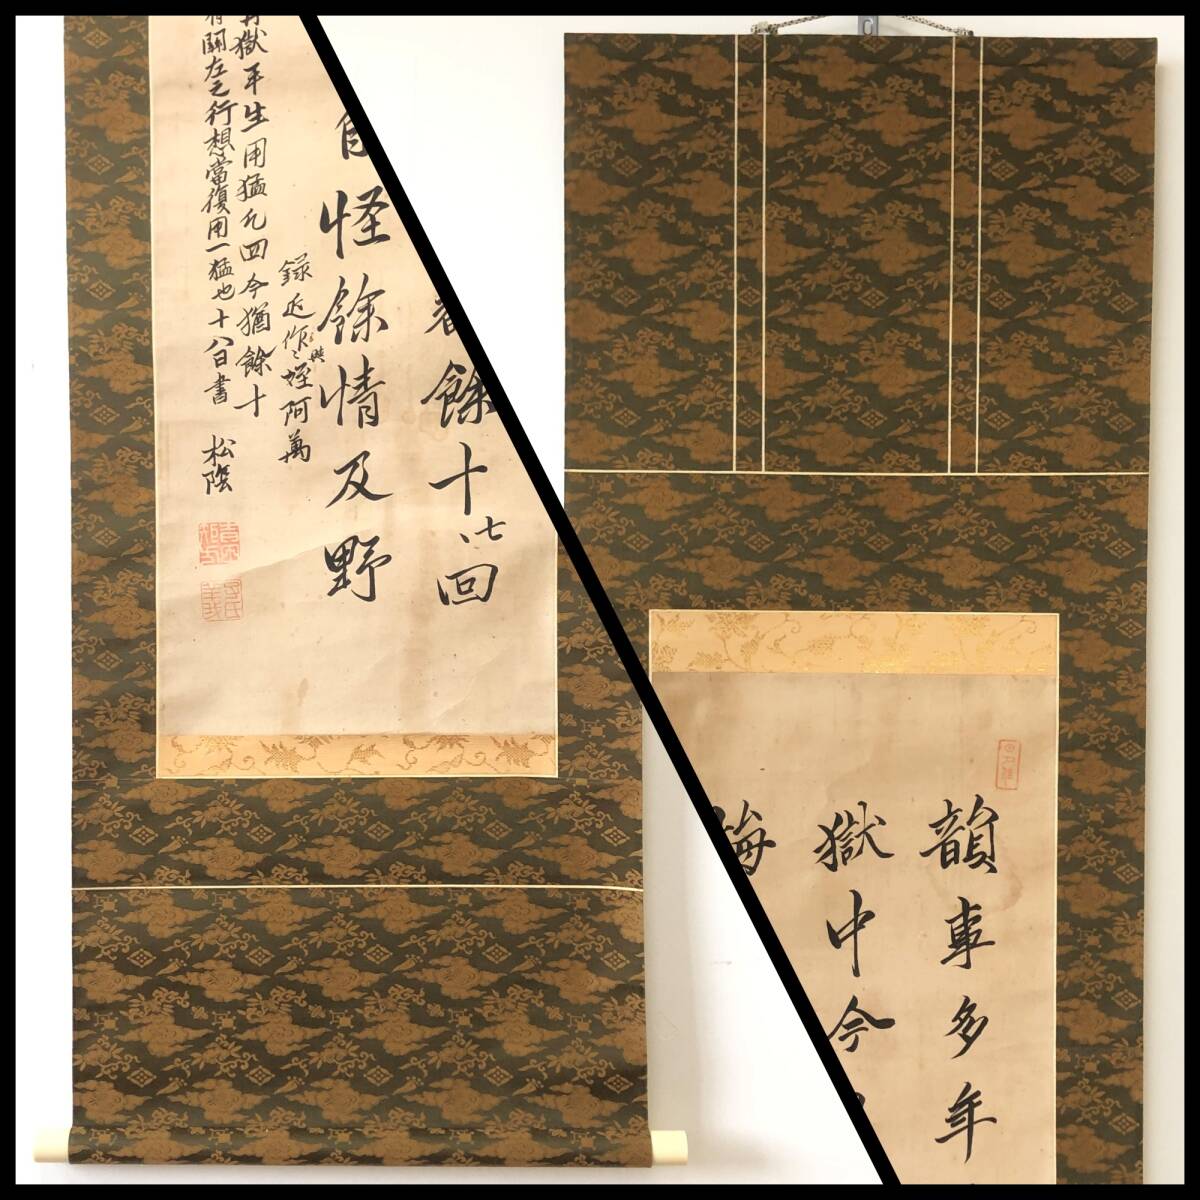 韻車多年
獄中今
海
餘十七回
自怪餘情及野
録近作與
姪阿萬
獄平生用猛凡四今猶餘十
有關左之行想當復用一猛也十八日書
松陰